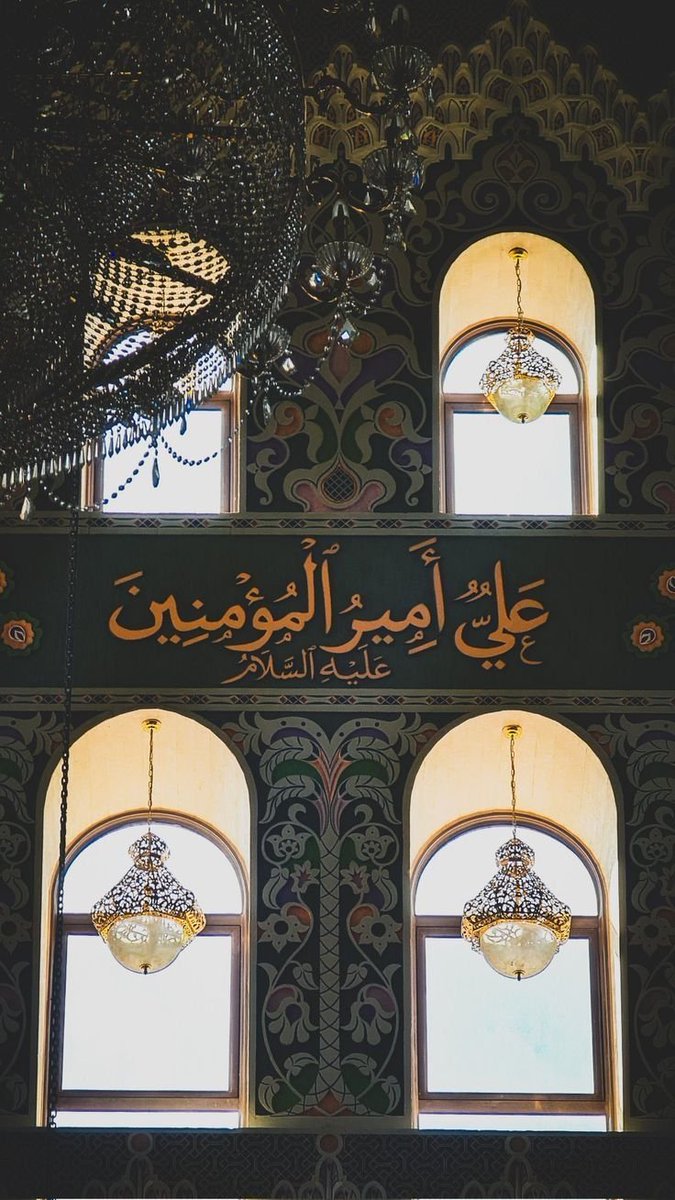 عَلِيٌّ أَمِيرُ الْمُؤْمِنِينَ
عَلَيْهِ السَّلَامُ